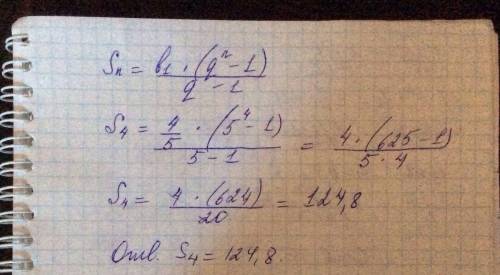 Sn = b1 · (q^n - 1) / q - 1
S4 = 4/5 · (5^4 - 1) / 5 - 1 = 4 · (625 - 1) / 5 · 4
S4 = 4 · (624) / 20 = 124,8
Отв. S4 = 124,8.